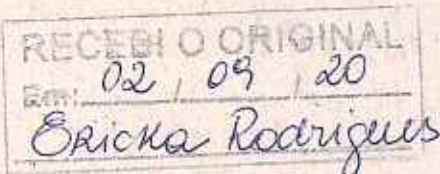 RECEBI O ORIGINAL
Em: 02 / 09 / 20
Ericka Rodrigues